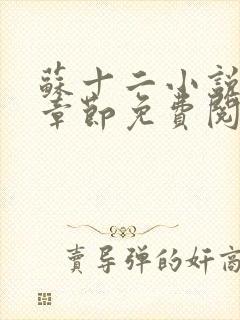 蘇十二小說
章節免費閱
賣导弹的奸商